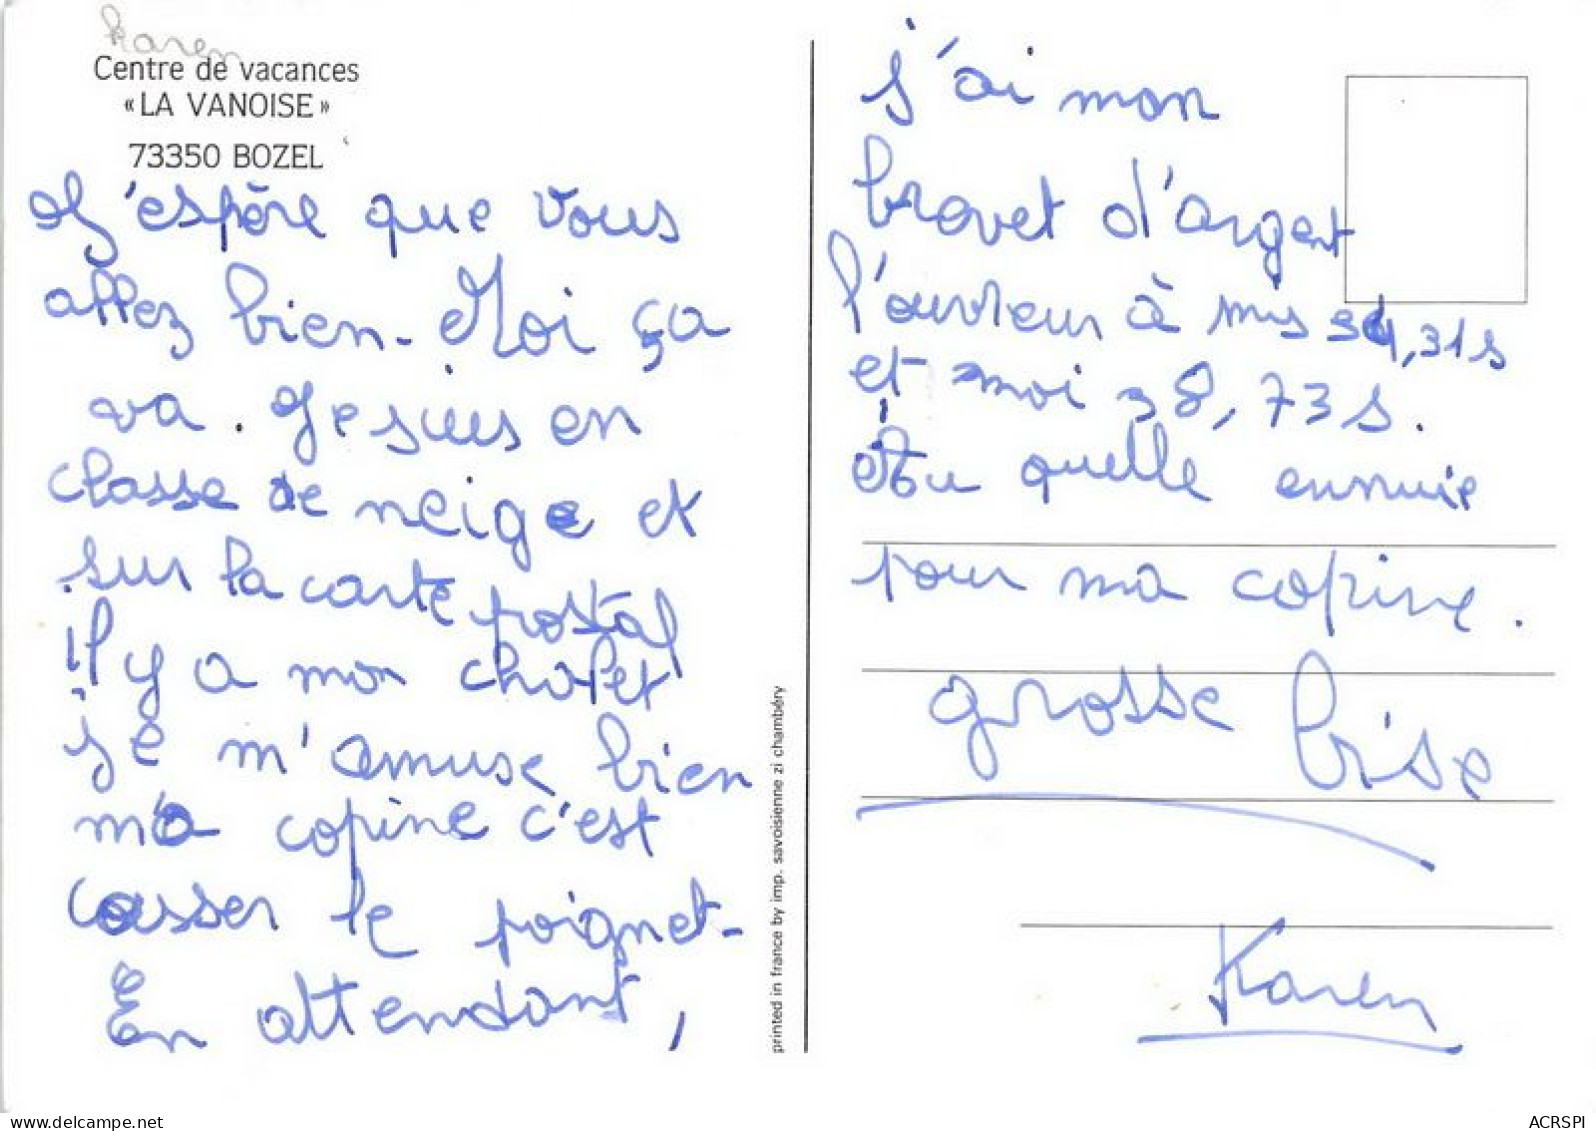 Karen
Centre de vacances
«LA VANOISE»
73350 BOZEL
J'espère que vous
allez bien. Moi ça
va. Je suis en
classe de neige et
sur la carte postal
il y a mon chalet
je m'amuse bien
ma copine c'est
casser le poignet.
En attendant,
printed in france by imp. savoisienne zi chambéry
j'ai mon
brevet d'argent
l'ouvreur à mis 34,31s
et moi 38,73s.
quelle ennuie
pour ma copine.
grosse bise
Karen
delcampe.net
ACRSPI